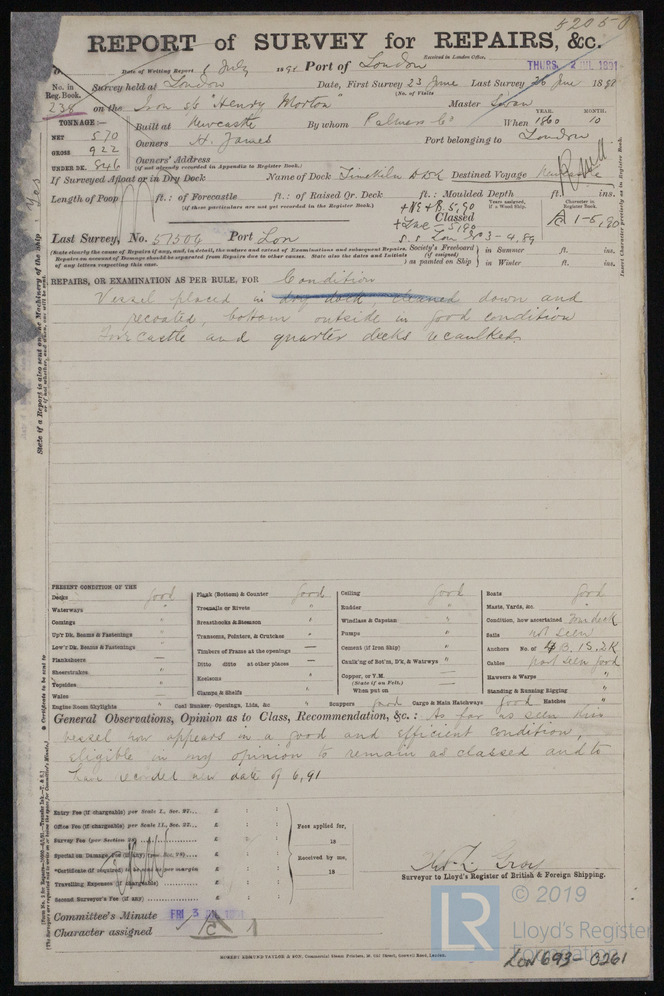 52050
REPORT of SURVEY for REPAIRS, &c.
Received in London Office,
Date of Writing Report 1 July 1891 Port of London THURS. 2 JUL 1891
No. in Reg. Book. Survey held at London Date, First Survey 23 June Last Survey 26 June 1891
(No. of Visits
238 on the Iron ss "Henry Morton" Master
TONNAGE:— YEAR. MONTH.
NET 570 Built at Newcastle By whom Palmers Co When 1860 10
GROSS 922 Owners H. James Port belonging to London
UNDER DK. 846 Owners' Address
(if not already recorded in Appendix to Register Book.)
If Surveyed Afloat or in Dry Dock Name of Dock Limekiln D Dk Destined Voyage
Length of Poop ft.: of Forecastle ft.: of Raised Qr. Deck ft.: Moulded Depth ft. ins.
(if these particulars are not yet recorded in the Register Book.)
+NE+B. 5,90
Classed
Years assigned, if a Wood Ship.
Character in Register Book.
A 1-5,90
+LMC-5,90
s.s. Lon No 3-4,89
Last Survey, No. 51506 Port Lon
(State clearly the cause of Repairs if any, and, in detail, the nature and extent of Examinations and subsequent Repairs. Society's Freeboard (if assigned) in Summer ft. ins.
Repairs on account of Damage should be separated from Repairs due to other causes. State also the dates and Initials as painted on Ship in Winter ft. ins.
of any letters respecting this case.
REPAIRS, OR EXAMINATION AS PER RULE, FOR Condition
Vessel placed in dry dock, cleaned down and
recoated, bottom outside in good condition
Forecastle and quarter decks recaulked
State if a Report is also sent on the Machinery of the Ship Yes
or if not whether, and when, one will be sent.
Insert Character precisely as in Register Book.
PRESENT CONDITION OF THE
Decks good
Waterways "
Comings "
Up'r Dk. Beams & Fastenings "
Low'r Dk. Beams & Fastenings "
Planksheers —
Sheerstrakes "
Topsides "
Wales —
Engine Room Skylights "
Plank (Bottom) & Counter good
Treenails or Rivets "
Breasthooks & Stemson "
Transoms, Pointers, & Crutches "
Timbers of Frame at the openings —
Ditto ditto at other places —
Keelsons "
Clamps & Shelfs "
Coal Bunker, Openings, Lids, &c "
Ceiling good
Rudder "
Windlass & Capstan "
Pumps "
Cement (if Iron Ship) "
Caulk'ng of Bot'm, D'k, & Waterways "
Copper, or Y.M. —
(State if on Felt.)
When put on
Scuppers good Cargo & Main Hatchways good Hatches "
Boats good
Masts, Yards, &c. "
Condition, how ascertained from deck
Sails not seen
Anchors No. of 4B. 1S. 2K
Cables part seen good
Hawsers & Warps "
Standing & Running Rigging "
General Observations, Opinion as to Class, Recommendation, &c. : As far as seen this
vessel now appears in a good and efficient condition,
eligible in my opinion to remain as classed and to
have recorded new date of 6,91
Certificates to be sent to
Entry Fee (if chargeable) per Scale I., Sec. 27... £ : :
Office Fee (if chargeable) per Scale II., Sec. 27... £ : :
Survey Fee (per Section 28) £ : :
Special on Damage Fee (if any) (per Sec. 28) £ : :
*Certificate (if required) as per margin £ : :
Travelling Expenses (if chargeable) £ : :
Second Surveyor's Fee (if any) £ : :
Fees applied for,
18
Received by me,
18
Surveyor to Lloyd's Register of British & Foreign Shipping.
Committee's Minute FRI 3 JUL 1891
Character assigned A 1
ROBERT EDMUND TAYLOR & SON, Commercial Steam Printers, 19, Old Street, Goswell Road, London.
LR
© 2019
Lloyd's Register
Foundation
LON 693-0261